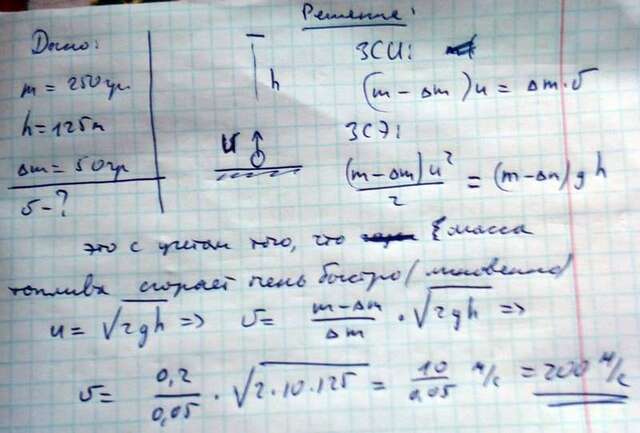 Решение:
Дано:
m = 250 гр.
h = 125 м
Δm = 50 гр
υ - ?
h
u
ЗСИ:
(m - Δm)u = Δm·υ
ЗСЭ:
(m-Δm)u²/2 = (m-Δm)gh
это с учетом того, что масса
топлива сгорает очень быстро/мгновенно/
u = √2gh => υ = (m-Δm)/Δm · √2gh =>
υ = 0,2/0,05 · √2·10·125 = 10/0,05 м/с = 200 м/с